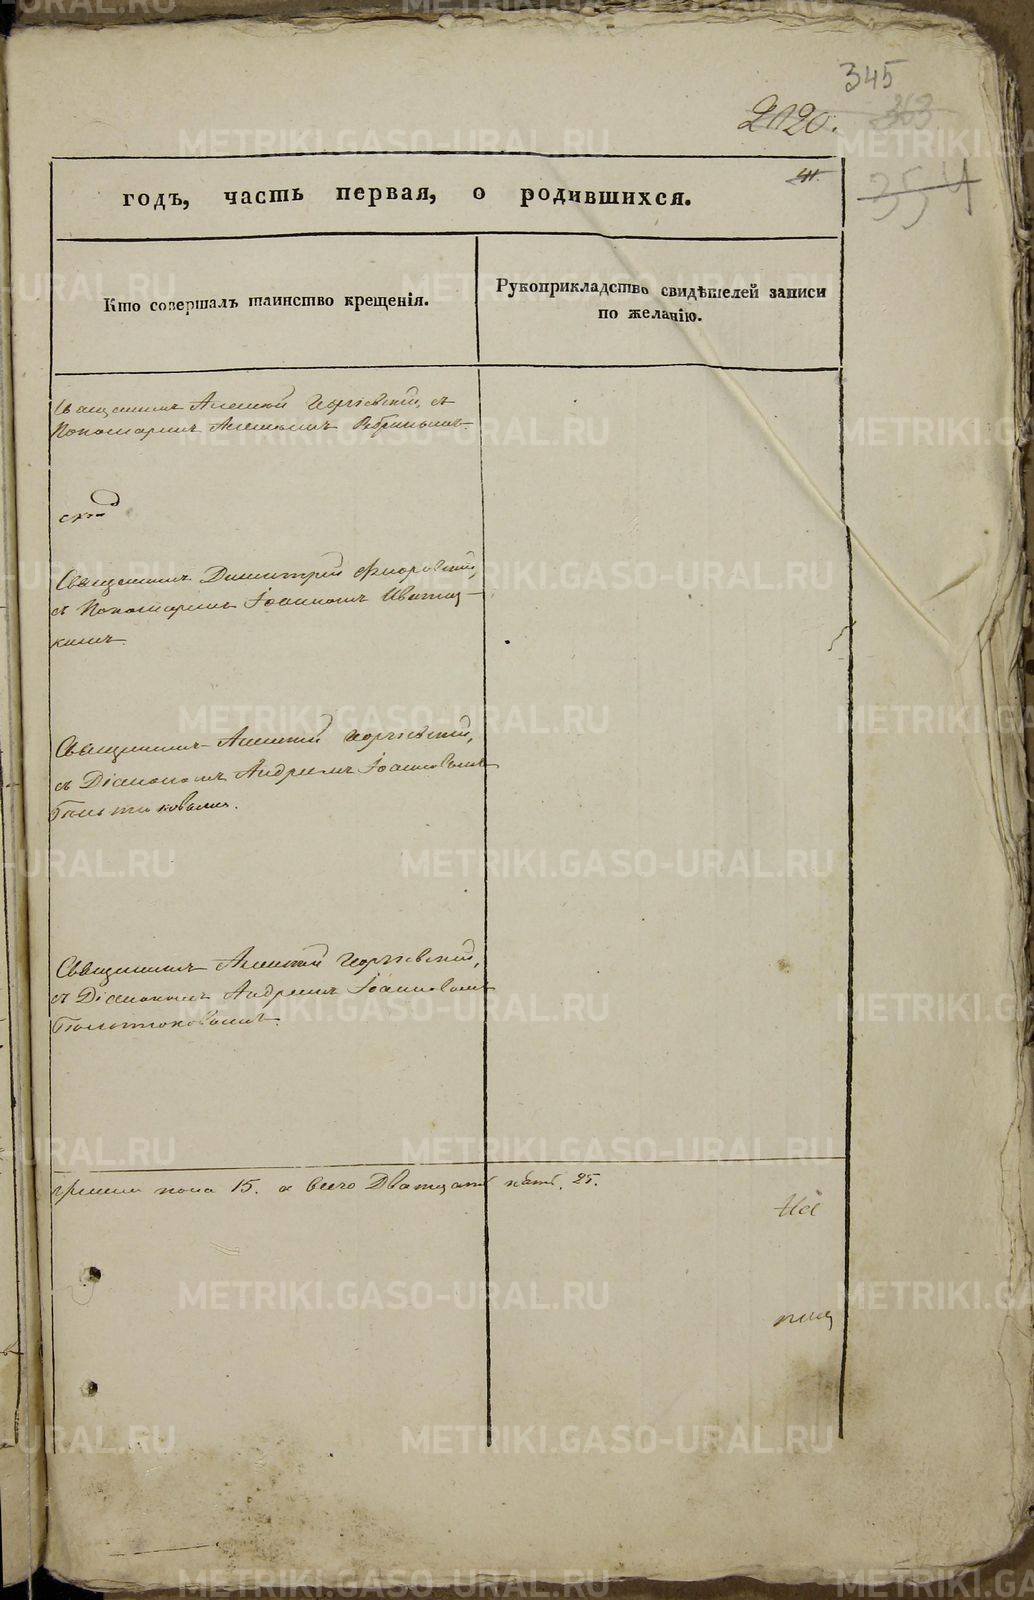 345
2120. 363
354
годъ, часть первая, о родившихся.
Кто совершалъ таинство крещенія.
Рукоприкладство свидѣтелей записи
по желанію.
Священникъ Алексій Георгіевскій, съ
Пономаремъ Алексѣемъ
Священникъ Димитрій
съ Пономаремъ Іоанномъ
Священникъ Алексій Георгіевскій,
съ Діакономъ Андреемъ Іоанновымъ
Священникъ Алексій Георгіевскій,
съ Діакономъ Андреемъ Іоанновымъ
пола 15. а всего Дватцать пять. 25.
METRIKI.GASO-URAL.RU